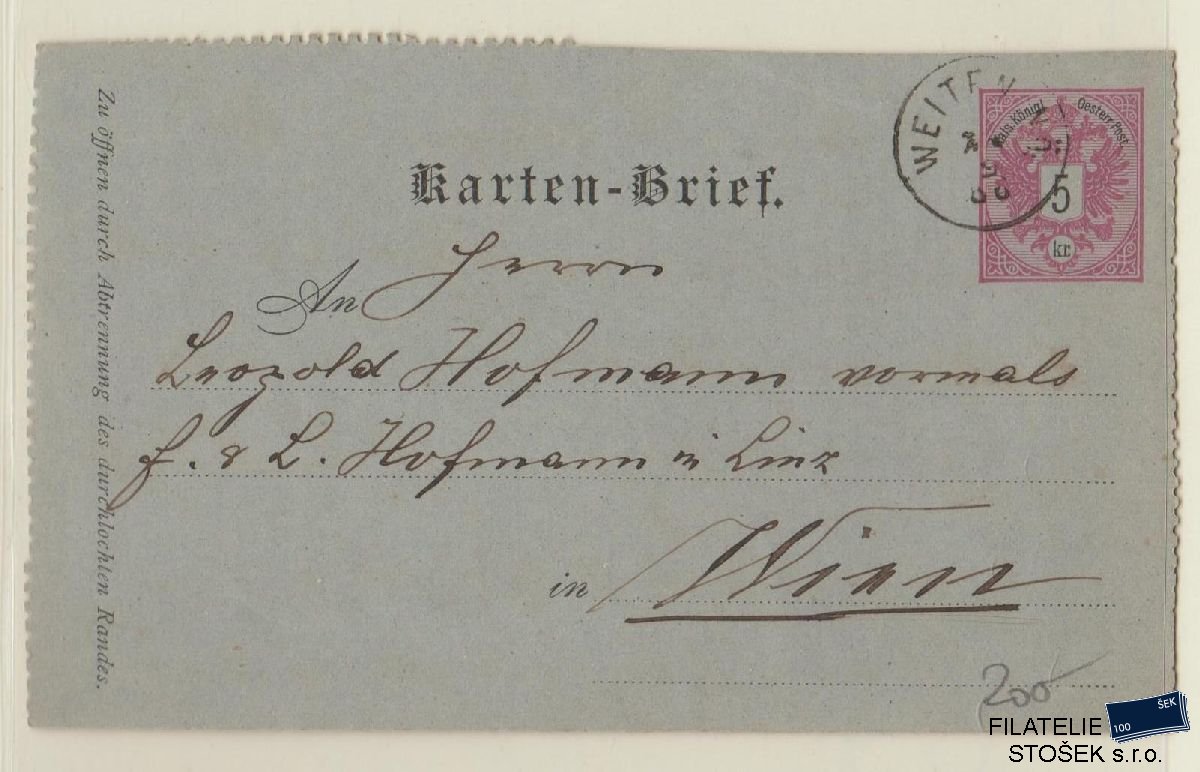 Zu öffnen durch Abtrennung des durchlochten Randes.
Karten-Brief.
WEITEN
Kais. Königl. Oesterr. Post.
5
kr
Herrn
An
Leopold Hofmann vormals
F. & L. Hofmann in Linz
in Wien
200
100 ŠEK
FILATELIE
STOŠEK s.r.o.